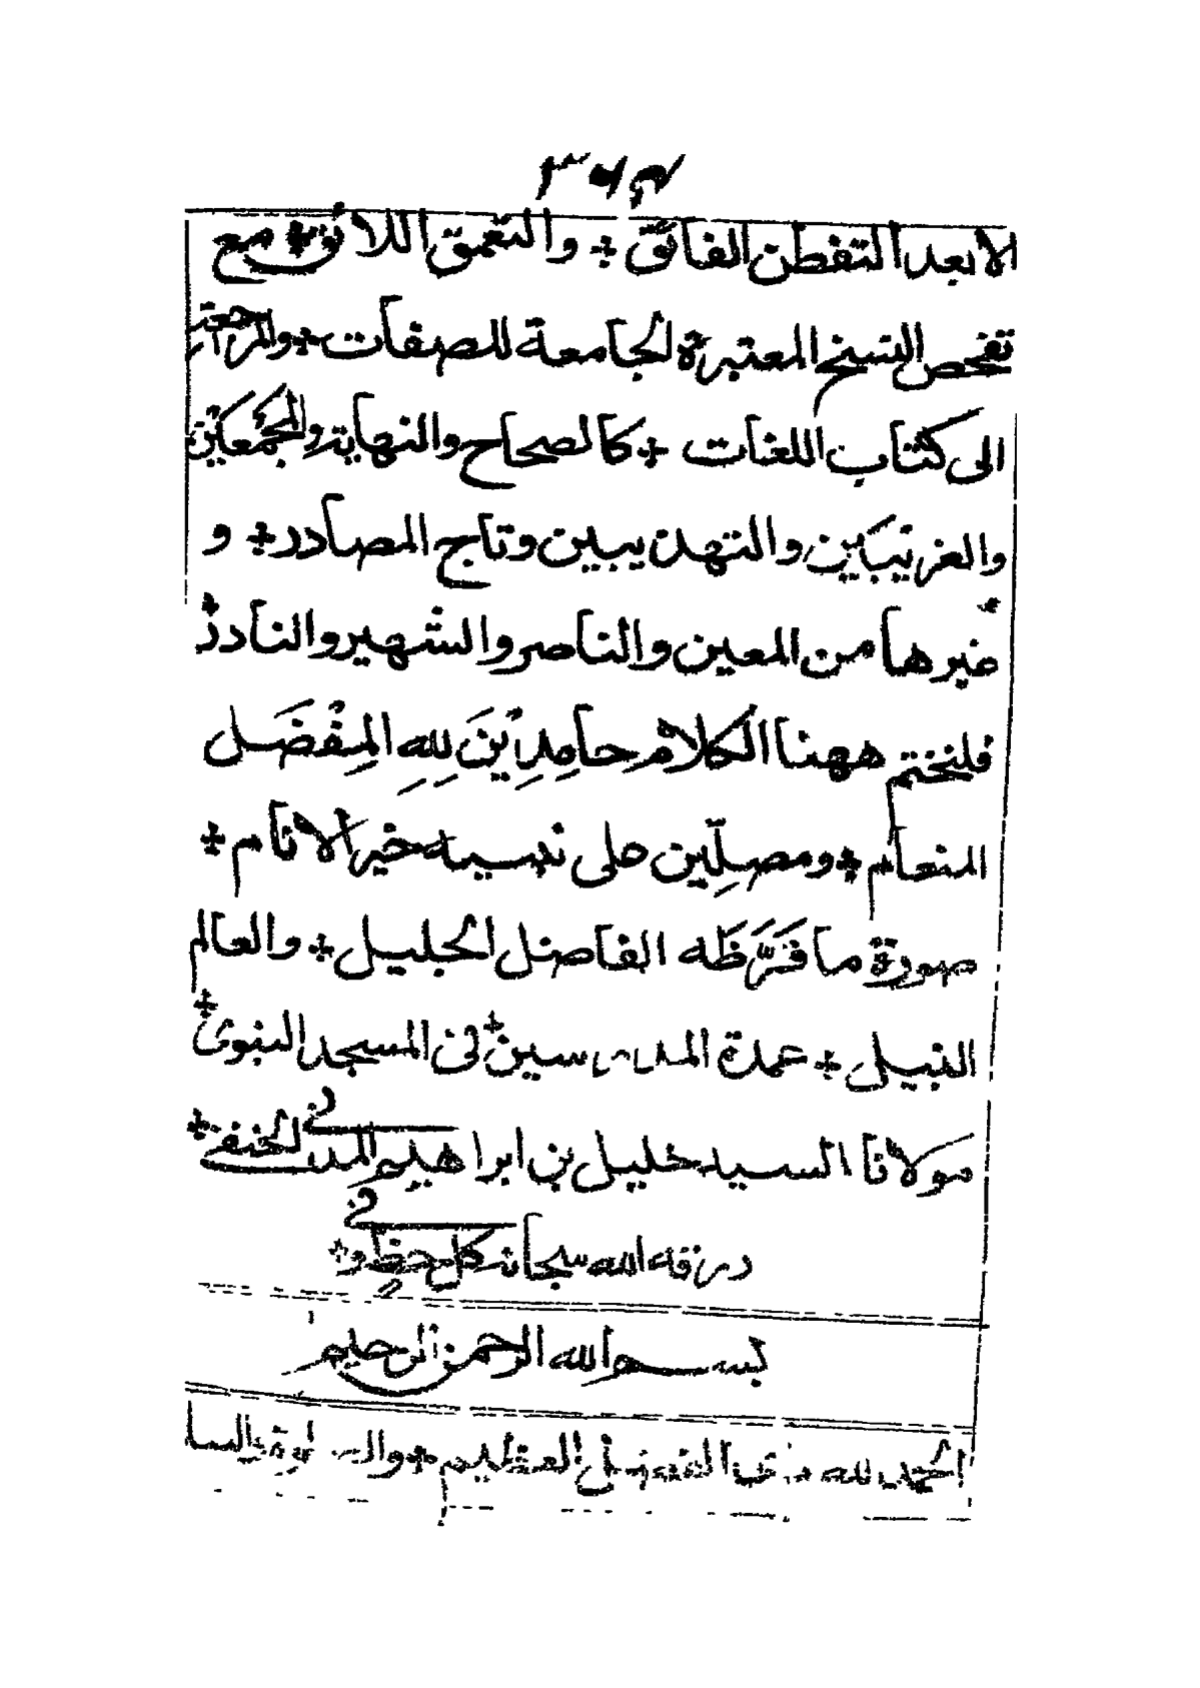 ٣٦٣
الا بعد التفطن الفائق ÷ والتعمق اللائق ÷ مع
تفحص النسخ المعتبرة الجامعة للصفات ÷ والمراجعة
الى كتاب اللغات ÷ كالصحاح والنهاية والمجمعين
والغريبين والتهذيبين وتاج المصادر ÷ و
غيرها من المعين والناصر والشهير والنادر ÷
فلنختم ههنا الكلام حامِدِيْنَ لِلهِ المِفْضَل
المنعام ÷ ومصلِّين على نبيه خير الانام ÷
صورة ما قَرَّظَه الفاضل الجليل ÷ والعالم
النبيل ÷ عمدة المدرسين ÷ فى المسجد النبوى ÷
مولانا السيد خليل بن ابراهيم المدنى الحنفى ÷
رزقه الله سبحانه كل حظٍ وفى ÷
بسم الله الرحمن الرحيم
الحمد لله ذى الفضل العظيم ÷ والصلوة والسلا